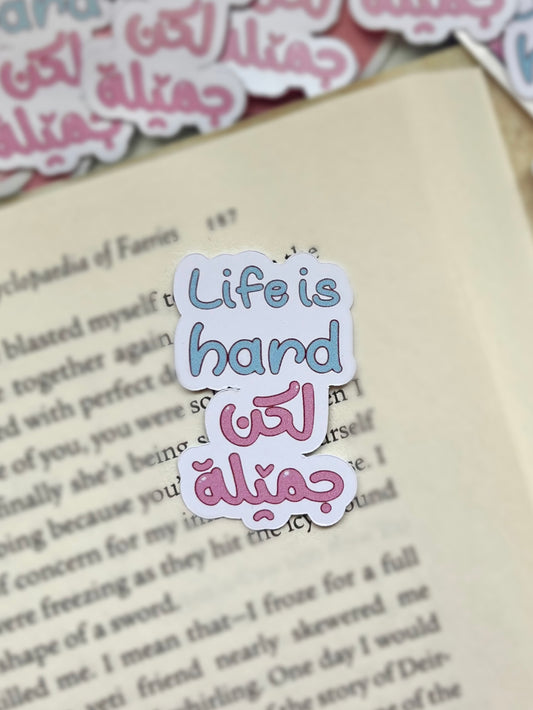 لكن
جميلة
clopaedia of Faeries 187
Life is
hard
لكن
جميلة
the
blasted myself t
e together again
ed with perfect d
e of you, you were so
n I
finally she's being s
urself
oing because you'
se. I
f concern for my in
ound
ere freezing as they hit the icy
shape of a sword.
illed me. I mean that—I froze for a full
yeti friend nearly skewered me
whirling. One day I would
the story of Deir-
of the